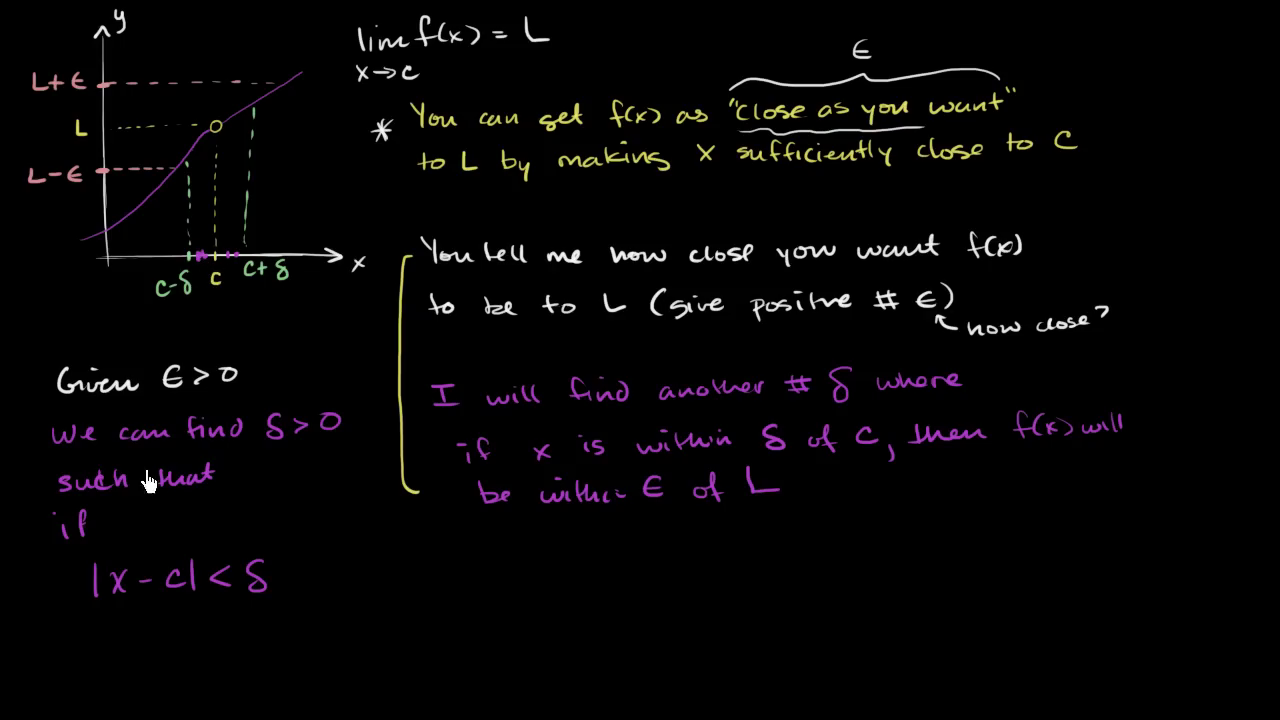 y
L+ϵ
L
L-ϵ
c-δ
c
c+δ
x
lim f(x) = L
x→c
ϵ
* You can get f(x) as "close as you want"
to L by making x sufficiently close to C
You tell me how close you want f(x)
to be to L (give positive # ϵ)
how close?
I will find another # δ where
if x is within δ of c, then f(x) will
be within ϵ of L
Given ϵ > 0
We can find δ > 0
such that
if
|x - c| < δ